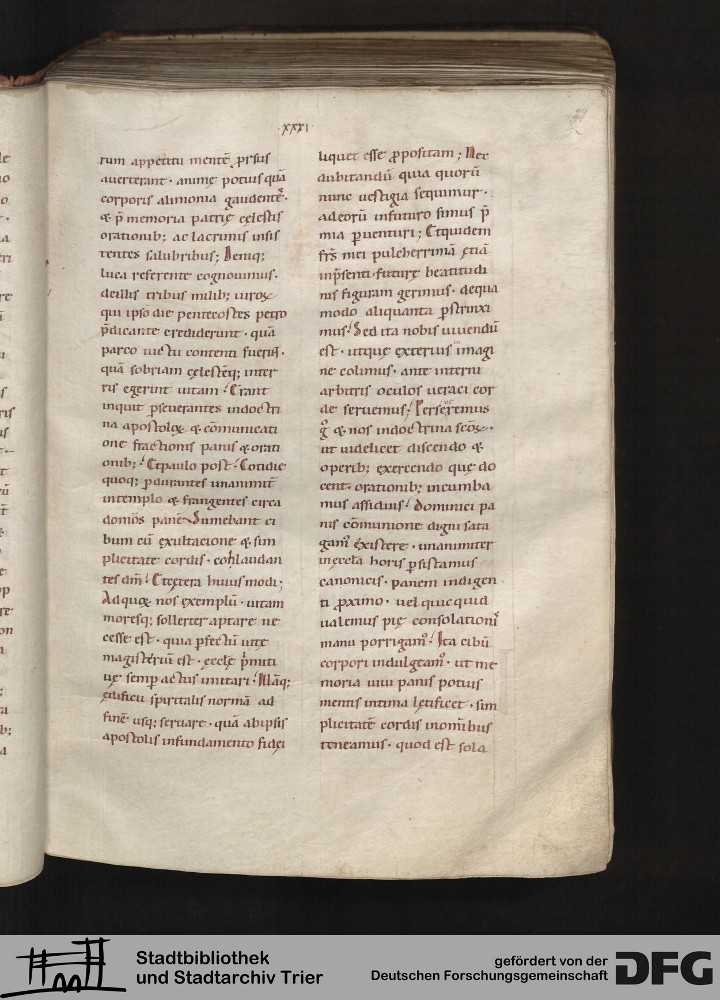 ·xxxi·
31
rum appetitu mentē ꝓrsus
auerterant · animę potius quā
corporis alimonia gaudentes ·
& p̄ memoria patrię cęlestis
orationib; ac lacrimis insis
tentes salubribus; Deniq;
luca referente cognouimus ·
deillis tribus milib; uiroꝝ
qui ipso die pentecostes petro
p̄dicante crediderunt · quā
parco uictu contenti fuerint ·
quā sobriam cęlestēq; inter
ris egerint uitam · Erant
inquit ꝑseuerantes indoctri
na apostoloꝝ & cōmunicati
one fractionis panis & orati
onib; · Et paulo post · Cotidie
quoq; ꝑdurantes unanimit̄
intemplo & frangentes circa
domos panē · Sumebant ci
bum cū exultatione & sim
plicitate cordis · conlaudan
tes dm̄ · Et cętera huiusmodi;
Ad quoꝝ nos exemplū · uitam
moresq; sollerter aptare ne
cesse est · quia ꝑfectū uitę
magisteriū est · ęcclę p̄miti
uę semꝑ actus imitari · Illāq;
ędificii spiritalis normā ad
finē usq; seruare · quā abipsis
apostolis infundamento fidei
liquet esse ꝓpositam; Nec
dubitandū quia quorū
nunc uestigia sequimur ·
adeorū infuturo simus p̄
mia ꝑuenturi; Et quidem
frs̄ mei pulcherrimā etiā
inp̄senti · futurę beatitudi
nis figuram gerimus · dequa
modo aliquanta ꝑstrinxi
mus · Sed ita nobis uiuendū
est · utque exterius imagi
ne colimus · ante interni
arbitris oculos ueraci cor
de seruemus; Perseueremus
g̊ & nos indoctrina scōꝝ ·
ut uidelicet discendo &
operib; exercendo quę do
cent · orationib; incumba
mus assiduis · Dominici pa
nis cōmunione digni sata
gam᾿ existere · unanimiter
inęccla horis ꝑsistamus
canonicis · panem indigen
ti ꝓximo · uel quicquid
ualemus pię consolationis
manu porrigam᾿ · Ita cibū
corpori indulgeam᾿ · ut me
moria uiui panis potius
mentis intima lętificet · sim
plicitatē cordis inomībus
teneamus · quod est sola
Stadtbibliothek
und Stadtarchiv Trier
gefördert von der
Deutschen Forschungsgemeinschaft
DFG